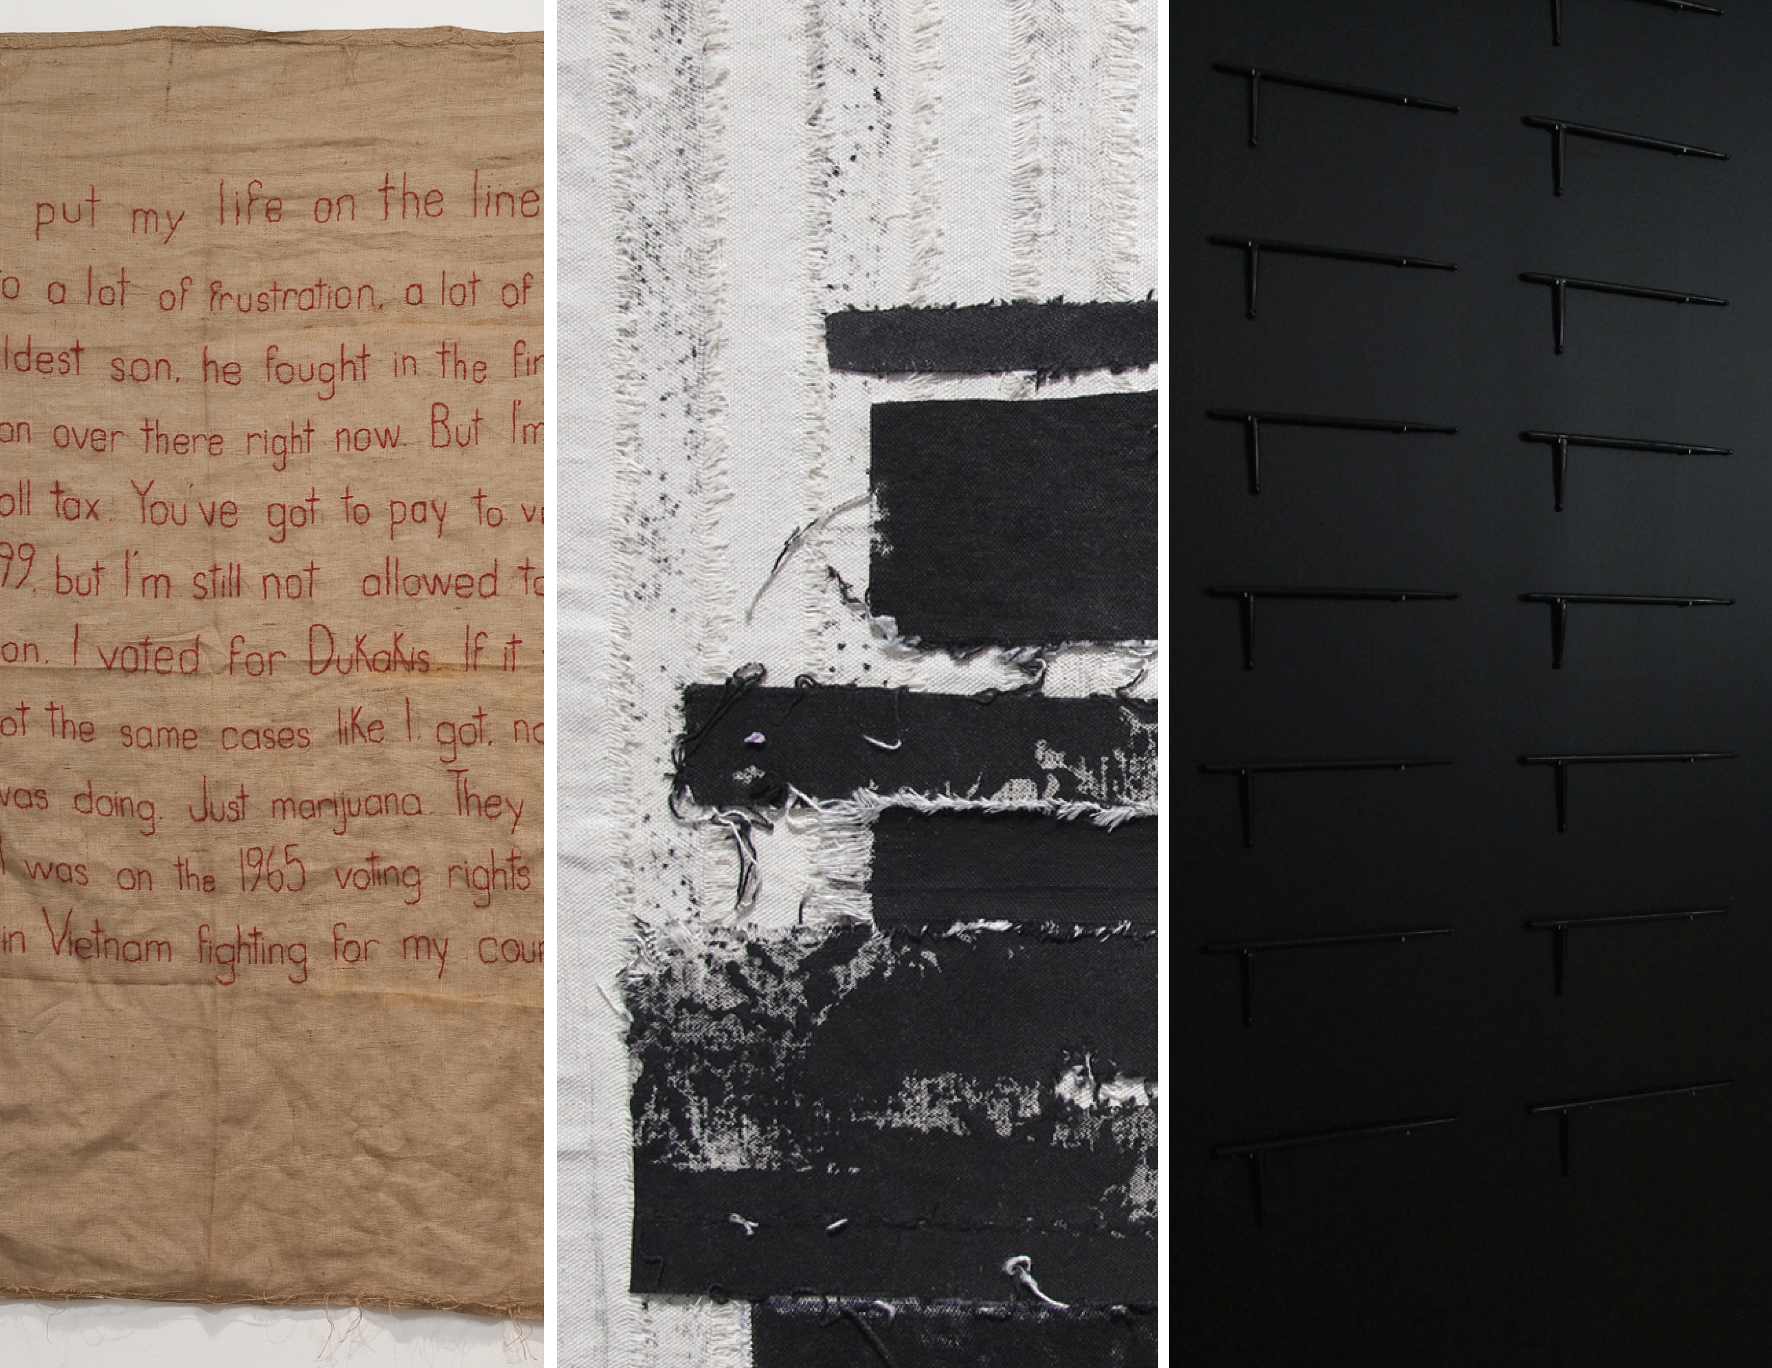 put my life on the line
o a lot of frustration, a lot of
ldest son, he fought in the fir
on over there right now. But I'm
oll tax. You've got to pay to v
99, but I'm still not allowed to
on. I voted for Dukakis. If it
ot the same cases like I got, no
was doing. Just marijuana. They
I was on the 1965 voting rights
in Vietnam fighting for my cour